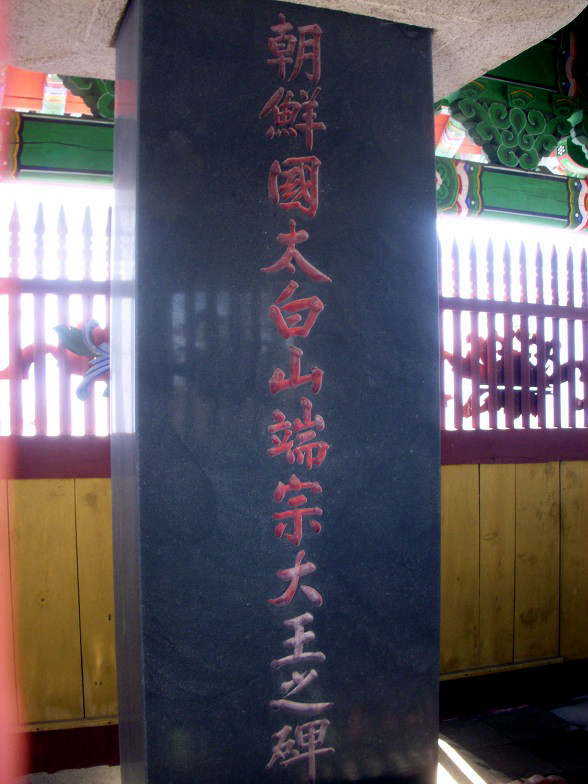 朝鮮國太白山端宗大王之碑